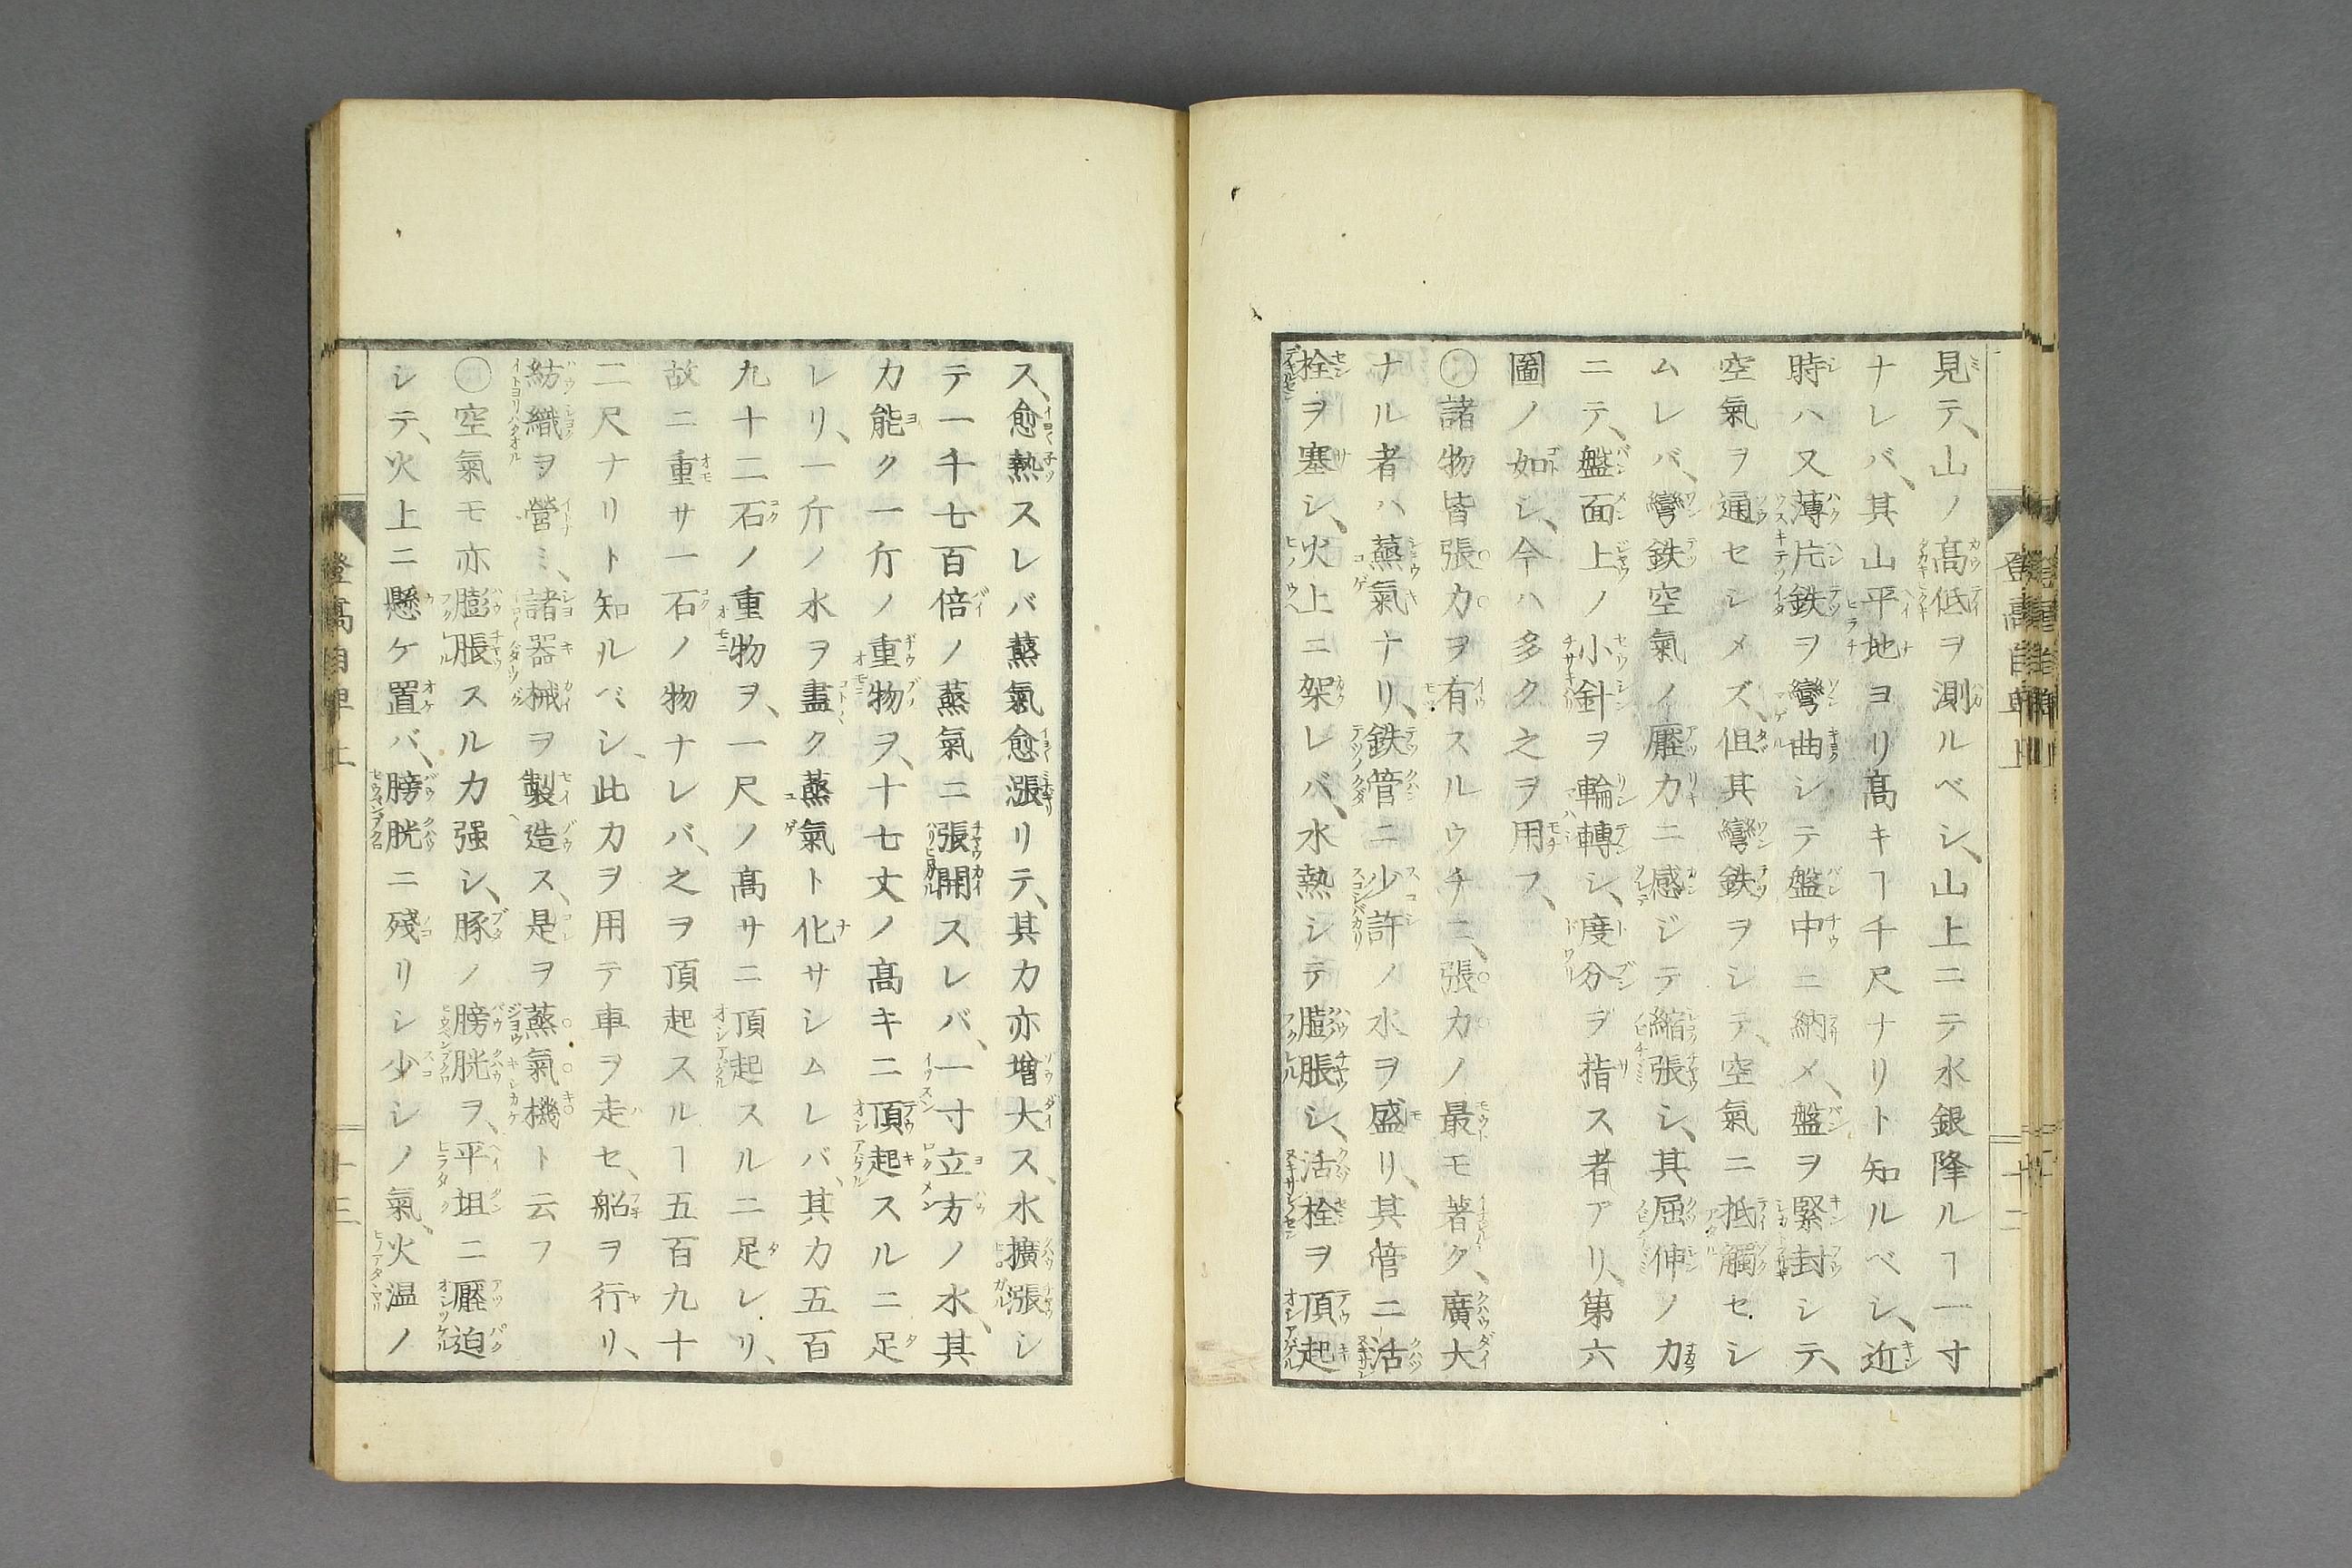 見テ、山ノ髙低ヲ測ルベシ、山上ニテ水銀降ルヿ一寸
ナレバ、其山平地ヨリ髙キヿ千尺ナリト知ルベシ、近
時ハ又薄片鉄ヲ彎曲シテ盤中ニ納メ、盤ヲ緊封シテ、
空氣ヲ通セシメズ、伹其彎鉄ヲシテ、空氣ニ抵觸セシ
ムレバ、彎鉄空氣ノ壓力ニ感ジテ縮張シ、其屈伸ノ力
ニテ、盤面上ノ小針ヲ輪轉シ、度分ヲ指ス者アリ、第六
圖ノ如シ、今ハ多ク之ヲ用フ、
〇諸物皆張力ヲ有スルウチニ、張力ノ最モ著ク、廣大
ナル者ハ蒸氣ナリ、鉄管ニ少許ノ水ヲ盛リ、其管ニ活
栓ヲ塞シ、火上ニ架レバ、水熱シテ膨脹シ、活栓ヲ頂起
登髙自卑上
十二
ス、愈熱スレバ蒸氣愈漲リテ、其力亦増大ス、水擴漲シ
テ一千七百倍ノ蒸氣ニ張開スレバ、一寸立方ノ水、其
力能ク一斤ノ重物ヲ、十七丈ノ髙キニ頂起スルニ足
レリ、一斤ノ水ヲ盡ク蒸氣ト化サシムレバ、其力五百
九十二石ノ重物ヲ、一尺ノ髙サニ頂起スルニ足レリ、
故ニ重サ一石ノ物ナレバ、之ヲ頂起スルヿ五百九十
二尺ナリト知ルベシ、此力ヲ用テ車ヲ走セ、船ヲ行リ、
紡織ヲ營ミ、諸器械ヲ製造ス、是ヲ蒸氣機ト云フ
〇空氣モ亦膨脹スル力强シ、豚ノ膀胱ヲ、平坦ニ壓迫
シテ、火上ニ懸ケ置バ、膀胱ニ殘リシ少シノ氣、火温ノ
登髙自卑上
十三